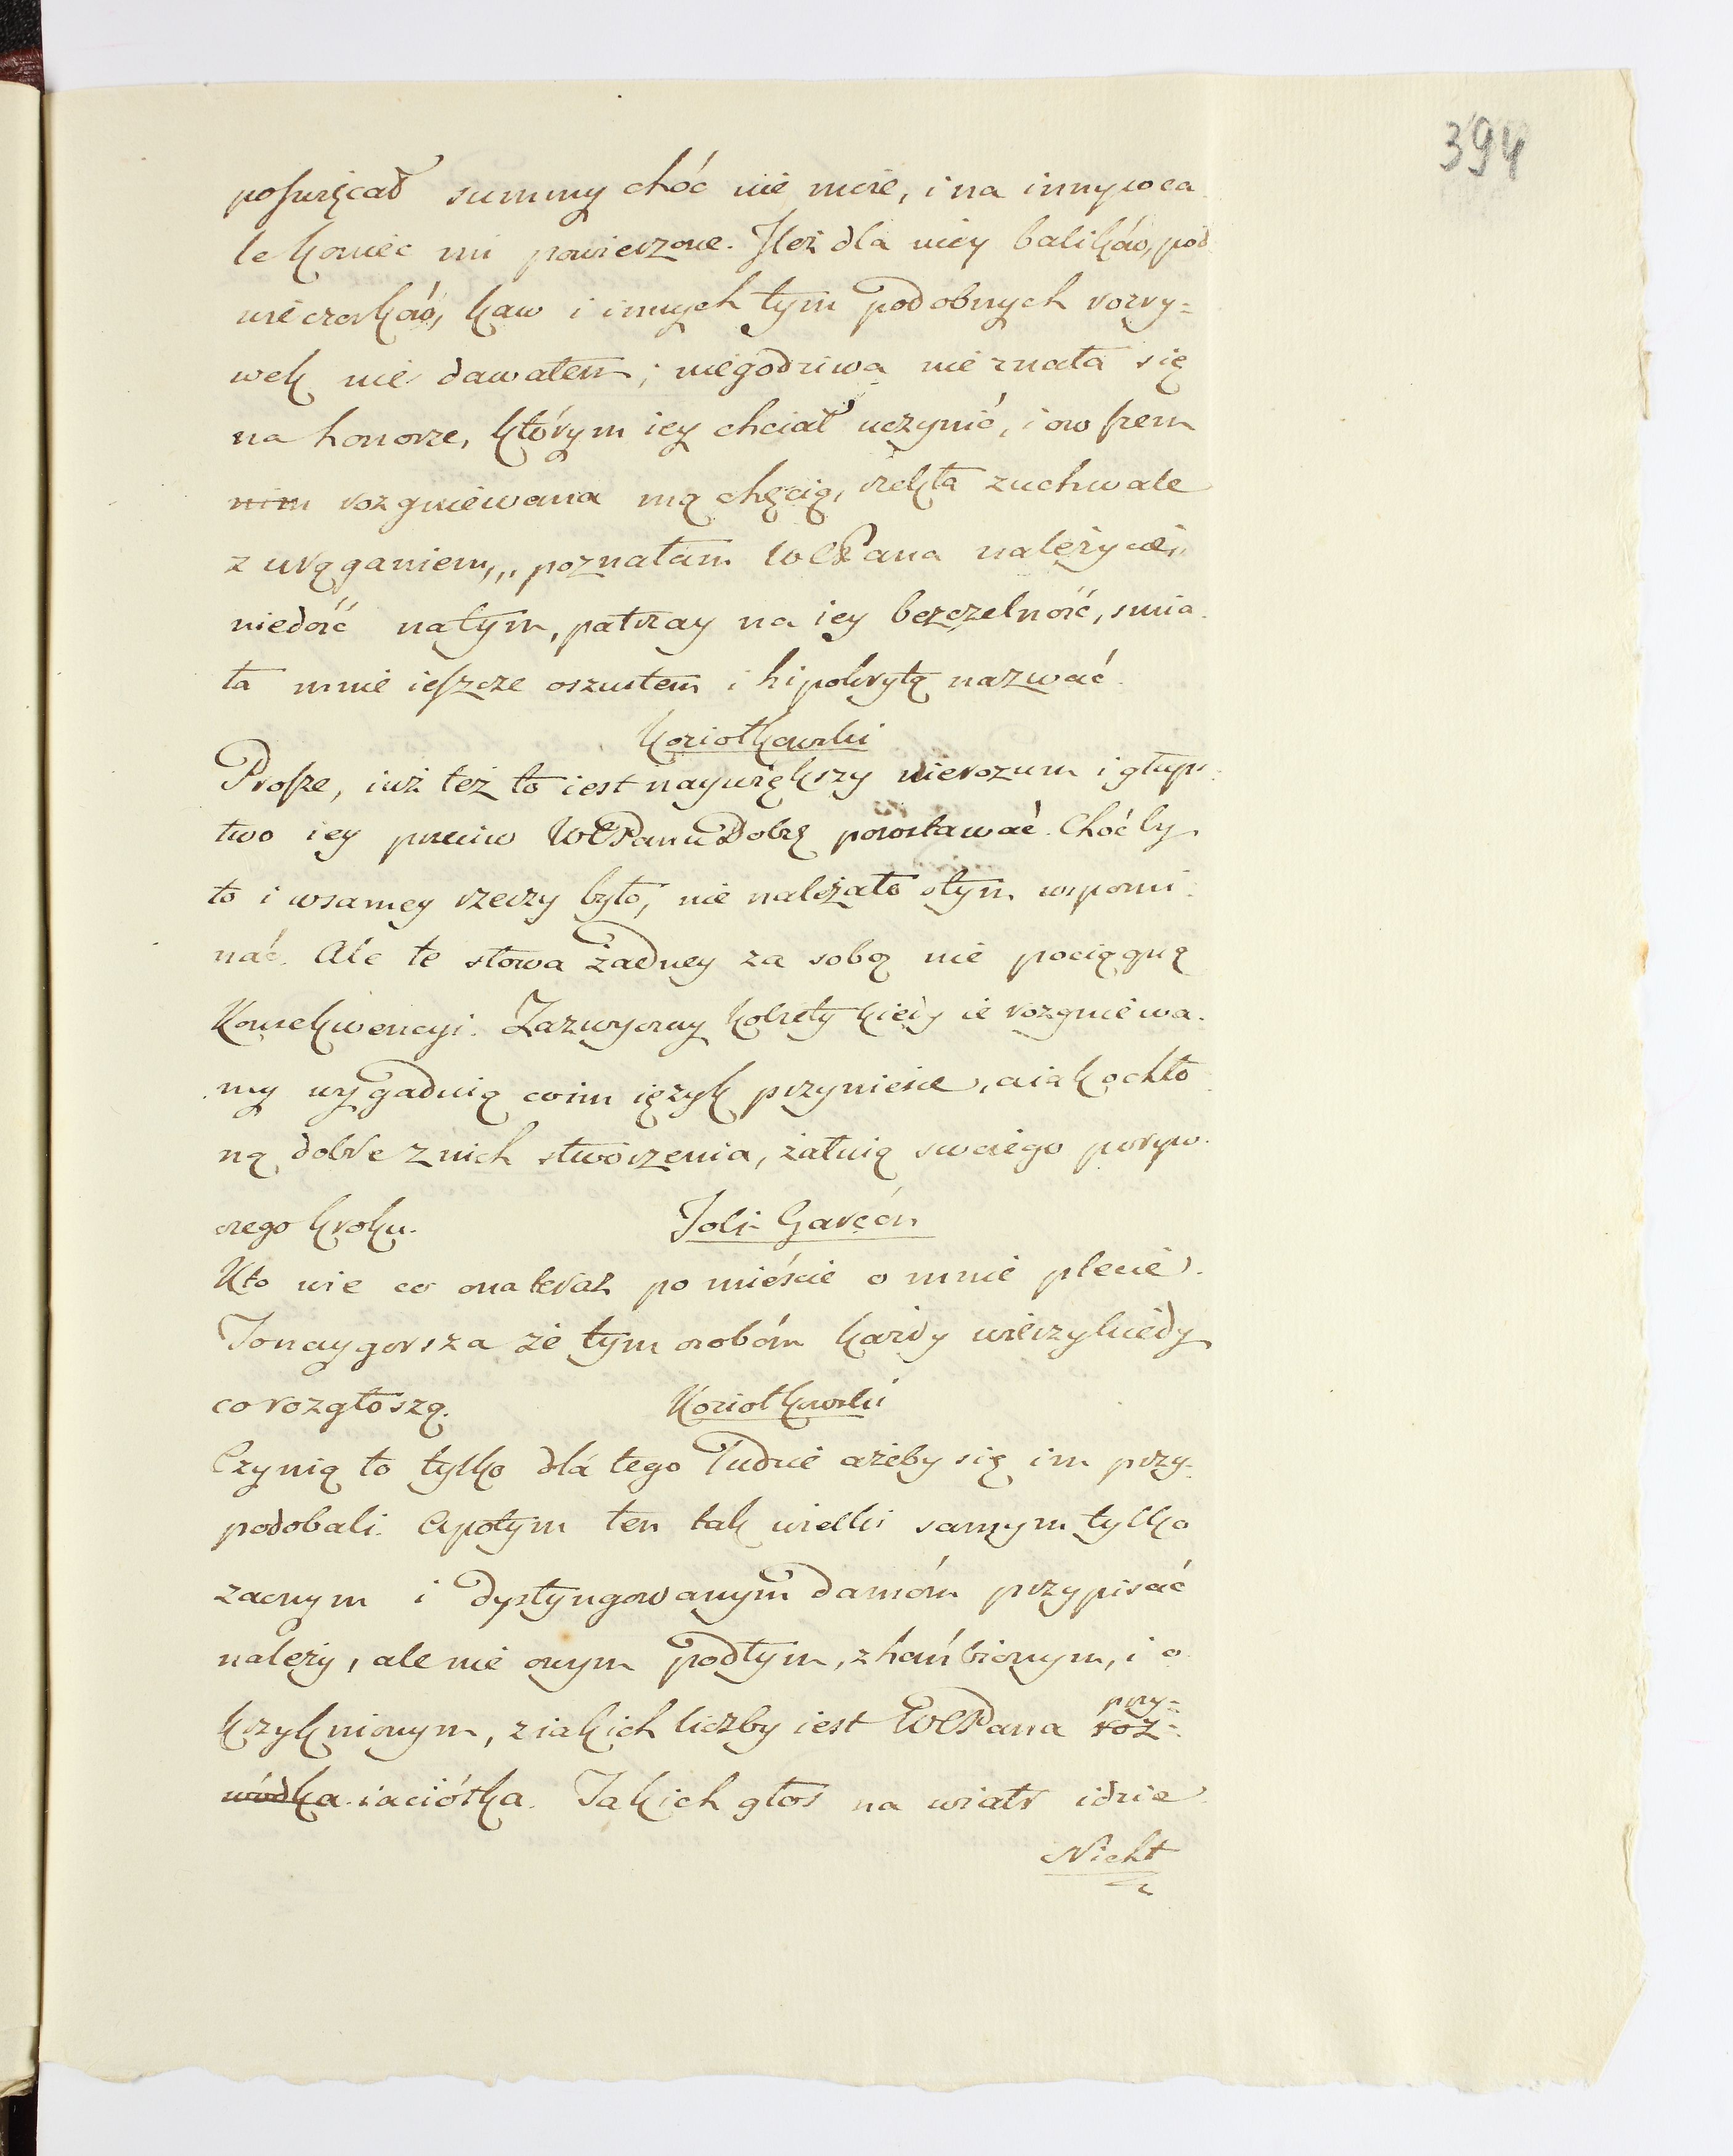 394
poświęcał summy choć nie moie, i na inny wca
le koniec mi powierzone. Jleż dla niey balików, pod
wieczorków, kaw i innych tym podobnych rozry=
wek nie dawałem; niegodziwa nie znała się
na honorze, którym iey chciał uczynić, i owszem
nim rozgniewana mą chęcią, rzekła zuchwale
z urąganiem,,, poznałam WCPana należycie,,
niedość natym, patrzay na iey bezczelność, smia
ła mnie ieszcze oszustem i hipokrytą nazwać.
Koziołkowski
Proszę, iuż też to iest naywiększy nierozum i głups
two iey przeciw WCPanu Dobrę powstawać. Choćby
to i wsamey rzeczy było, nie należało otym wspomi
nać. Ale te słowa żadney za sobą nie pociągną
Konsekwencyi. Zazwyczay kobiety kiedy ie rozgniewa
my wygadaią co im ięzyk przyniesie, a iak ochło
ną dobre z nich stworzenia, żałuią swoiego poryw
czego kroku.
Joli-Garçón
Kto wie co ona teraz po mieście o mnie plecie.
To naygorsza że tym osobóm każdy wierzy kiedy
co rozgłoszą.
Koziołkowski
Czynią to tylko dla tego ludzie ażeby się im przy-
podobali. Apotym ten tak wielki samym tylko
zacnym i dystyngowanym damóm przypisać
należy, ale nie owym podłym, zhańbionym, i o
krzyknionym, z iakich liczby iest WCPana przy=
roz=
wódka iaciółka. Jakich głos na wiatr idzie
Nicht